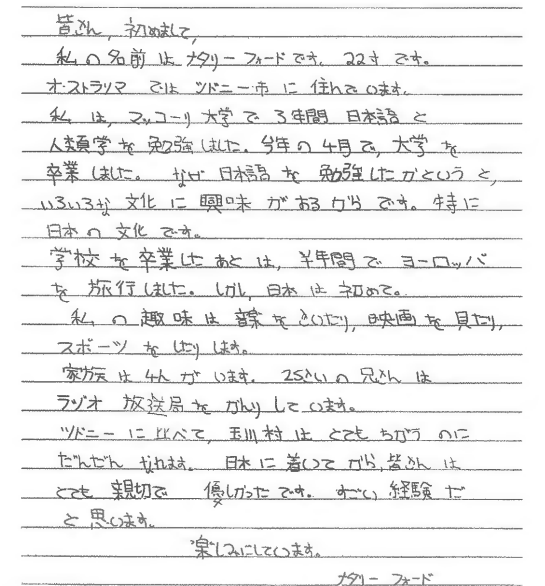 皆さん、初めまして、
私の名前はナタリーフォードです。22才です。
オ-ストラリアではシドニー市に住んでいます。
私は、マッコーリ大学で3年間日本語と
人類学を勉強しました。今年の4月で、大学を
卒業しました。なぜ日本語を勉強したかというと、
いろいろな文化に興味があるからです。特に
日本の文化です。
学校を卒業したあとは、半年間でヨーロッパ
を旅行しました。しかし、日本は初めて。
私の趣味は音楽をきいたり、映画を見たり、
スポーツをしたりします。
家族は4人がいます。25さいの兄さんは
ラジオ放送局をかんりしています。
シドニーに比べて、玉川村はとてもちがうのに
だんだんなれます。日本に着いてから、皆さんは
とても親切で優しかったです。すごい経験だ
と思います。
楽しみにしています。
ナタリーフォード